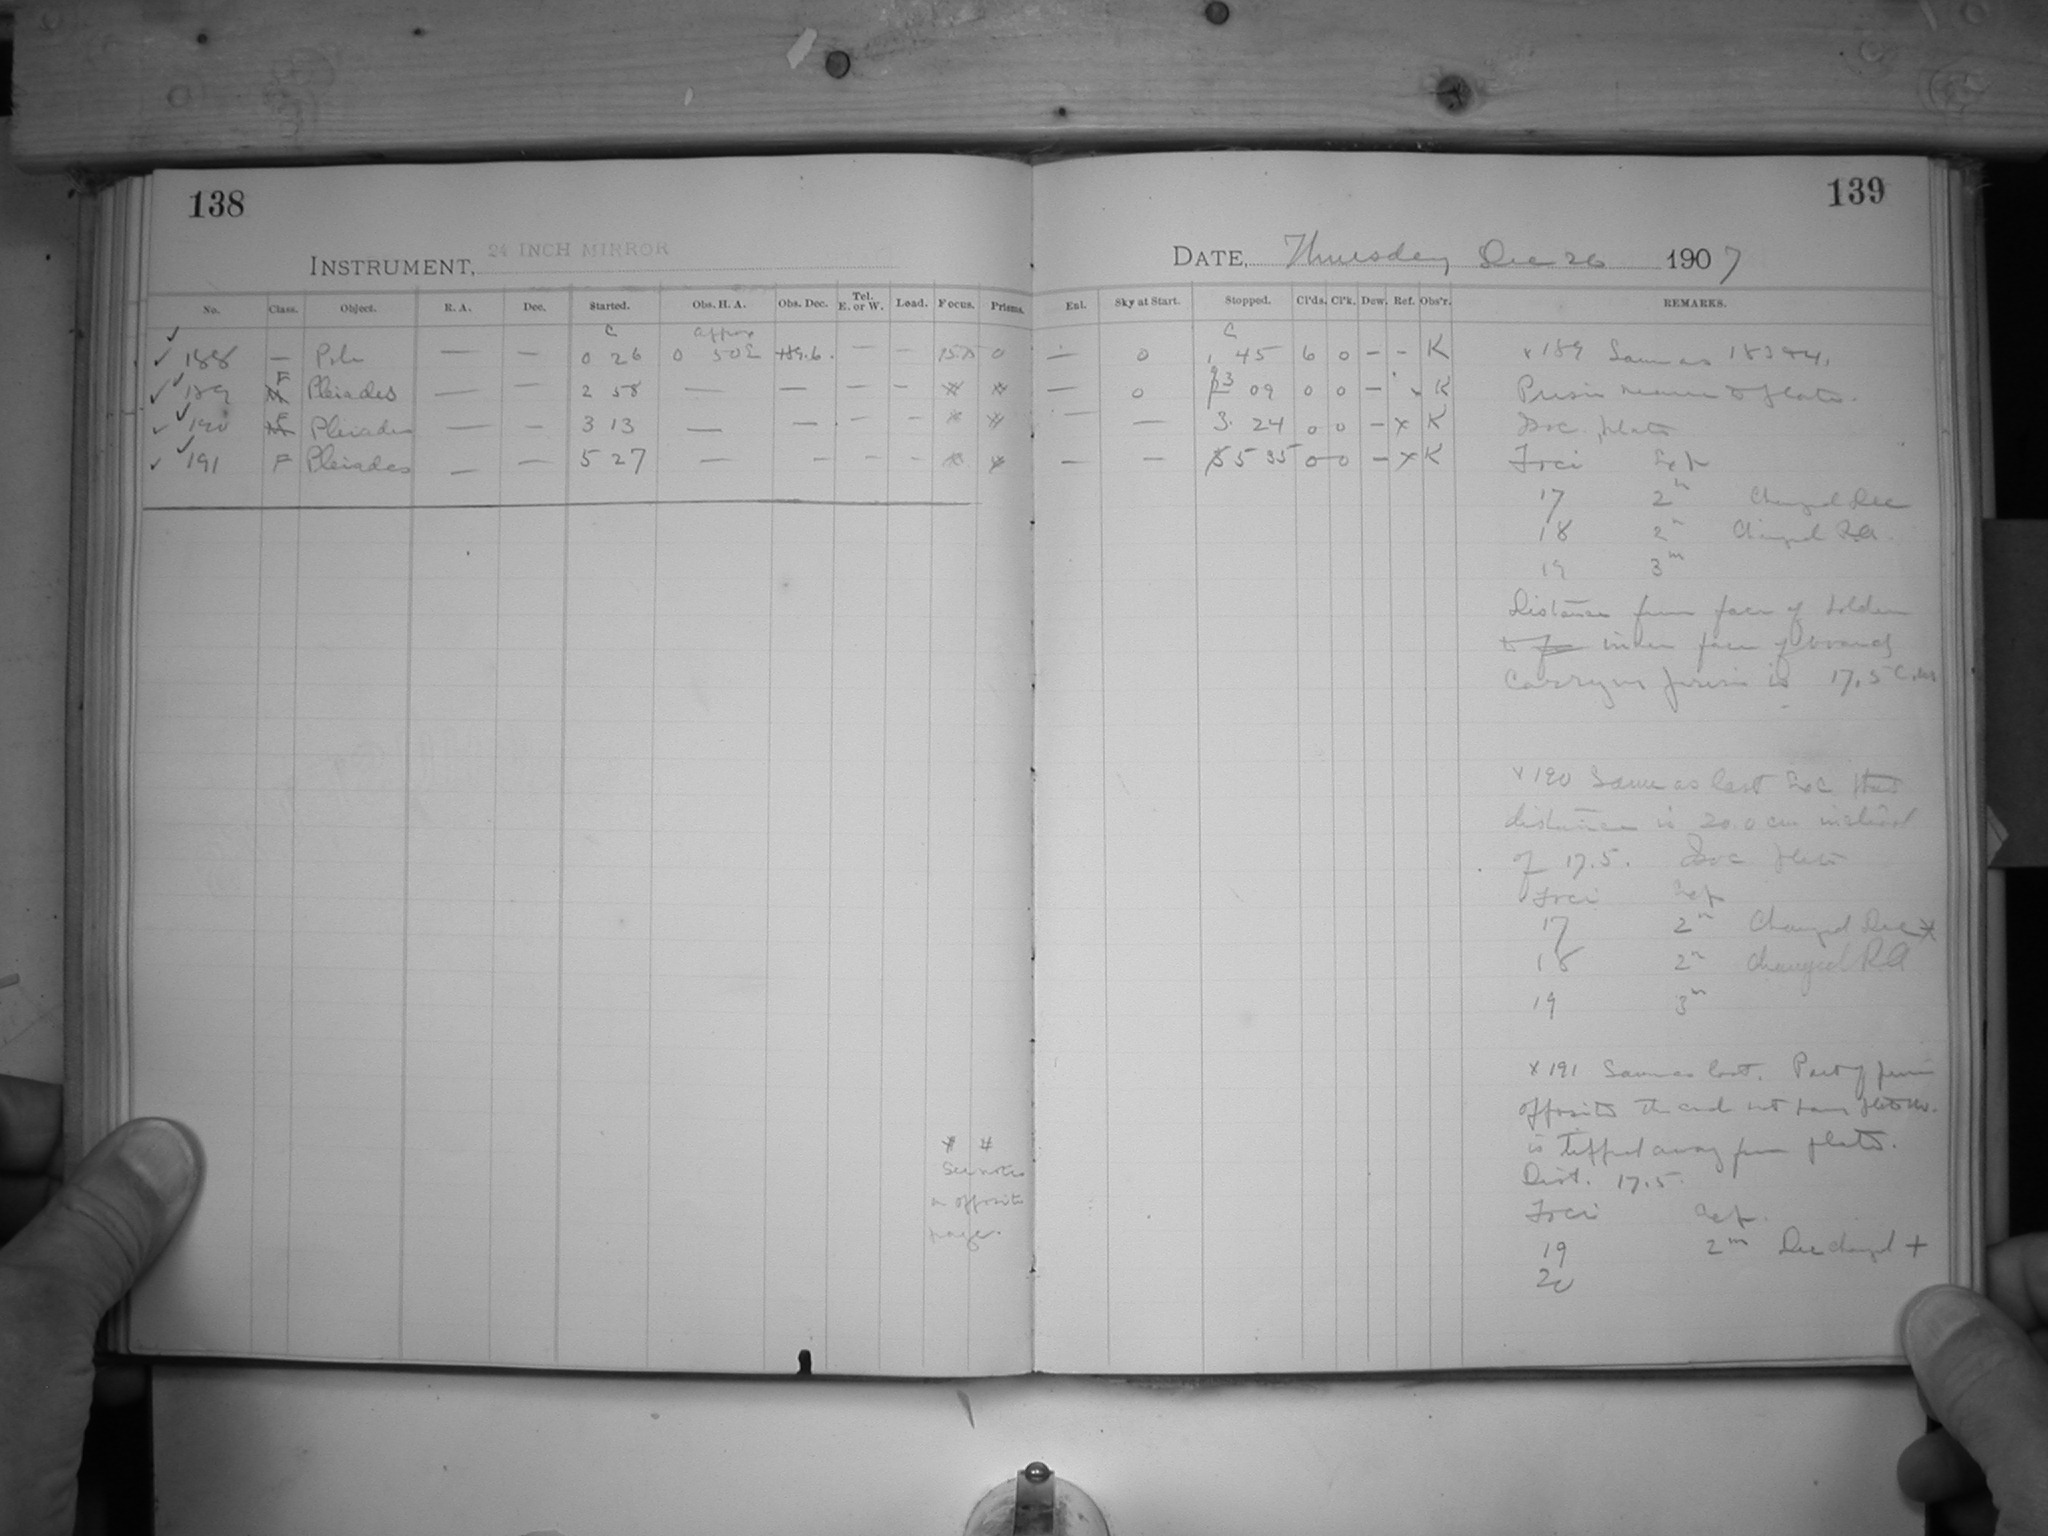 138
INSTRUMENT, 24 INCH MIRROR
No. Class. Object. R. A. Dec. Started. Obs. H. A. Obs. Dec. Tel. E. or W. Load. Focus. Prisms.
C approx
188 — Pole — — 0 26 0 50E +89.6. — — 0
189 F Pleiades — — 2 58 — — — — * *
190 F Pleiades — — 3 13 — — — — * *
191 F Pleiades — — 5 27 — — — — * *
* *
See note
on opposite
page.
139
DATE, Thursday Dec 26 1907
Enl. Sky at Start. Stopped. Cl'ds. Cl'k. Dew. Ref. Obs'r. REMARKS.
C
— 0 1 45 6 0 — — K
— 0 3 09 0 0 — K
— — 3 24 0 0 — x K
— — 5 35 0 0 — x K
x 189 Same as 18394.
Prism nearer to plate.
plate
Foci Exp
17 2m Changed Dec
18 2m Changed RA
19 3m
Distance from face of holder
to inner face of board
carrying prism is 17.5 c.m
x 190 Same as last Exc that
distance is 20.0 cm instead
of 17.5. plate
Foci Exp
17 2m Changed Dec x
18 2m Changed RA
19 3m
x 191 Same as last. Part of prism
opposite the end
is tipped away from plate.
Dist. 17.5.
Foci Exp.
19 2m Dec changed +
20